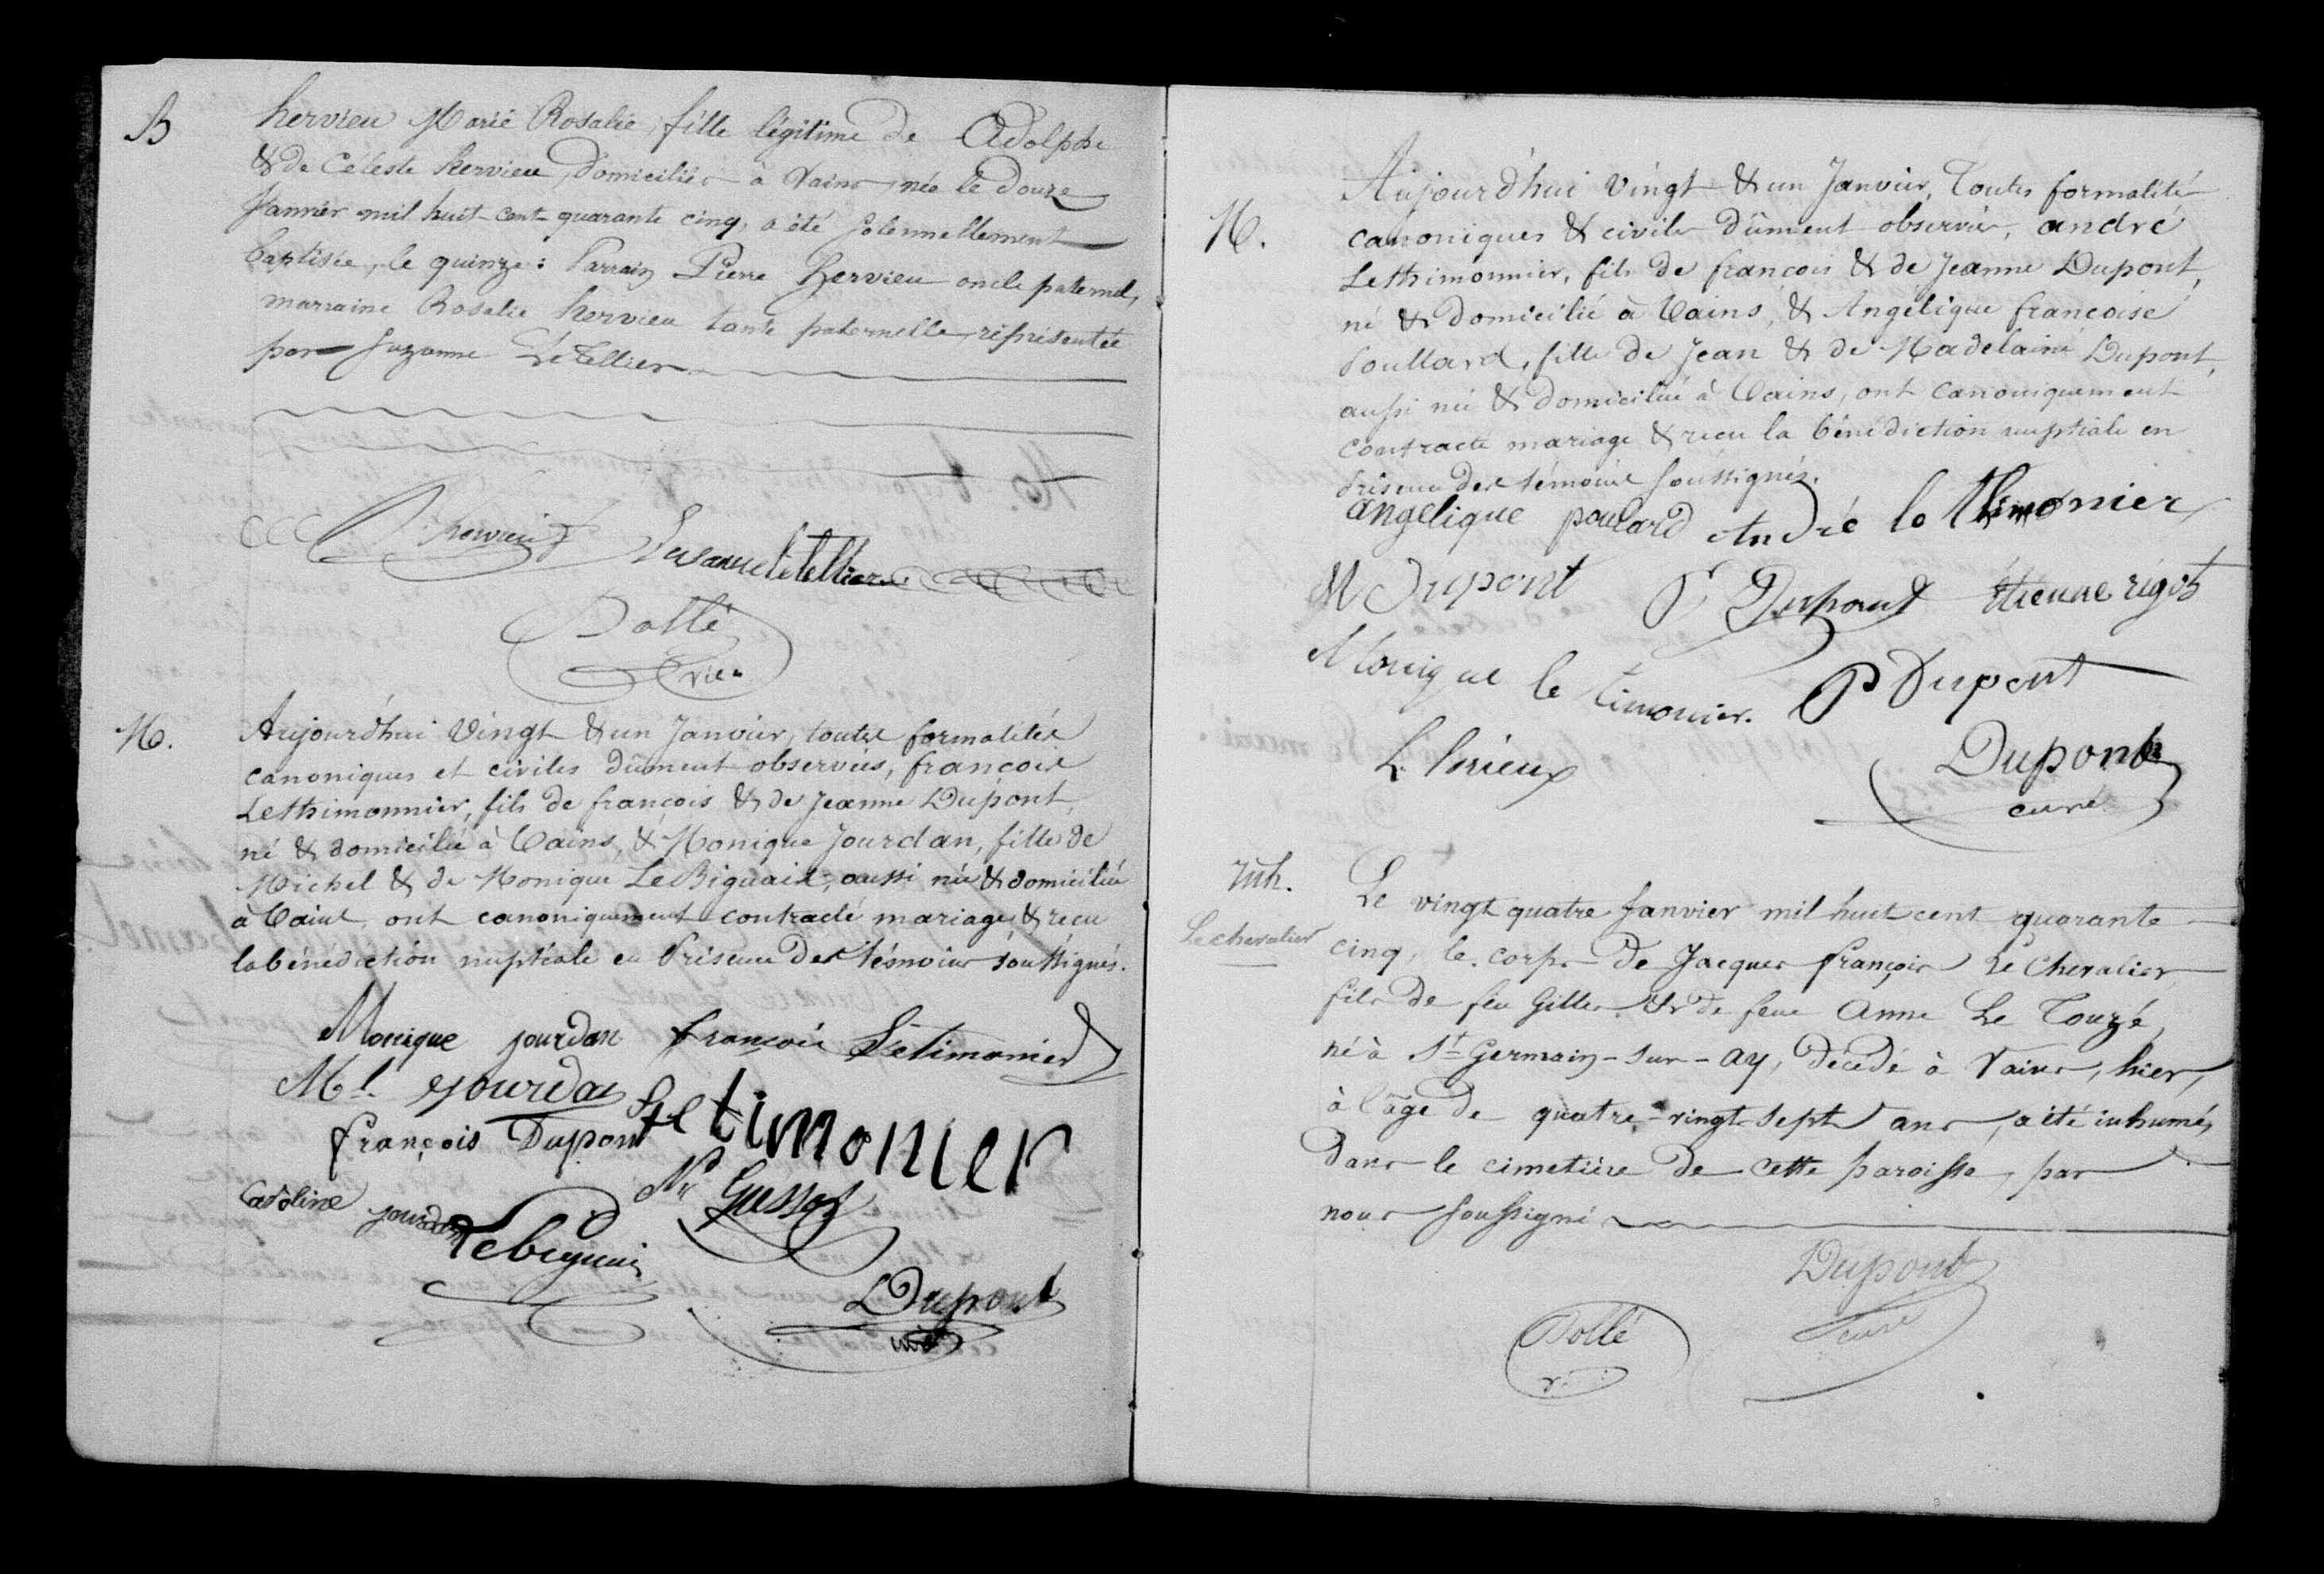 B
hervieu Marie Rosalie, fille légitime de Adolphe
& de Céleste hervieu, domiciliés à Vains, née le douze
Janvier mil huit-cent quarante cinq, a été solennellement
baptisée, le quinze: Parrain Pierre hervieu oncle paternel,
marraine Rosalie hervieu tante paternelle, représentée
par Suzanne Le Tellier
hervieu
Susanne letellier
Dollé
vic.
M.
Aujourd'hui Vingt & un Janvier, toutes formalités
canoniques et civiles dûment observées, françois
Lethimonnier, fils de françois & de Jeanne Dupont,
né & domicilié à Vains, & Monique Jourdan, fille de
Michel & de Monique Le Biguais, aussi née & domiciliée
à Vains, ont canoniquement contracté mariage, & reçu
la bénédiction nuptiale en Présence des témoins soussignés.
Monique jourdan françois Letimonier
Ml. jourdan
Letimonier
françois Dupont
Caroline jourdan
Dupont
curé
M.
Aujourd'hui vingt & un Janvier, Toutes formalités
canoniques & civiles dûment observées, andré
Lethimonnier, fils de françois & de Jeanne Dupont,
né & domicilié à Vains, & Angélique françoise
Poullard, fille de Jean & de Madelaine Dupont,
aussi née & domiciliée à Vains, ont canoniquement
contracté mariage & reçu la bénédiction nuptiale en
Présence des témoins soussignés.
angelique poulard André le thimonier
M Dupont P Dupont étienne rigot
Monique le timonier. P Dupont
Dupont
curé
Inh.
Lechevalier
Le vingt quatre Janvier mil huit cent quarante
cinq, le corps de Jacques françois Le Chevalier
fils de feu Gilles & de feue Anne Le Touzé,
né à St Germain-sur-ay, décédé à Vains, hier,
à l'âge de quatre-vingt sept ans, a été inhumé,
dans le cimetière de cette paroisse, par
nous soussigné
Dupont
curé
Dollé
v.